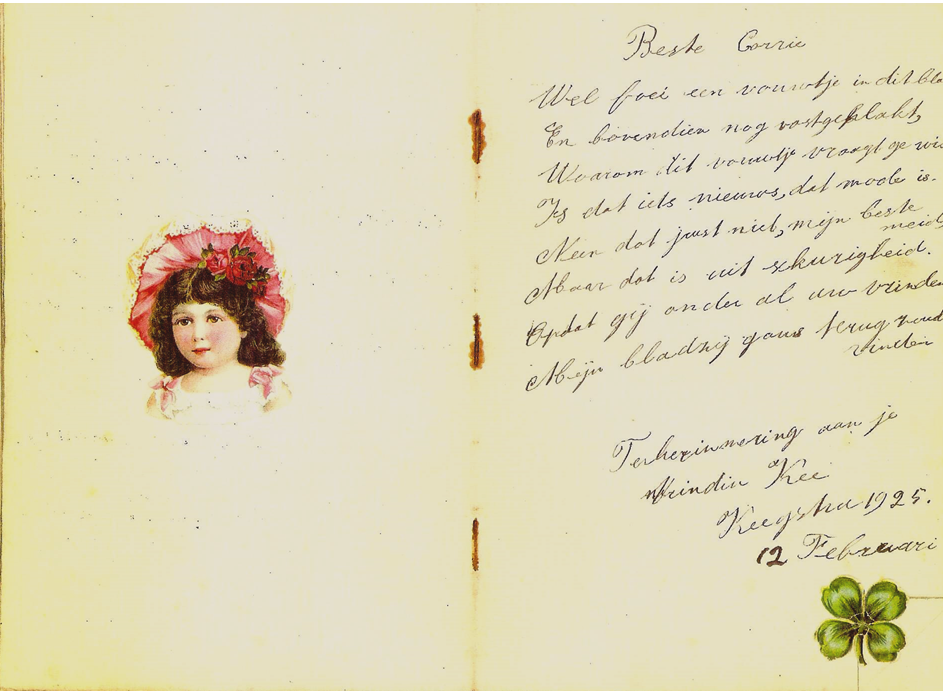 Beste Corrie
Wel foei een vouwtje in dit bla
En bovendien nog vastgeplakt,
Waarom dit vouwtje vraagt ge wi
Is dat iets nieuws, dat mode is.
Neen dat juist niet, mijn beste
meid,
Maar dat is uit skurigheid.
Opdat gij onder al uw vrinden
Mijn bladzij gauw terug zoud
vinden
Ter herinnering aan je
Vrindin Kee
Keegstra 1925.
12 Februari